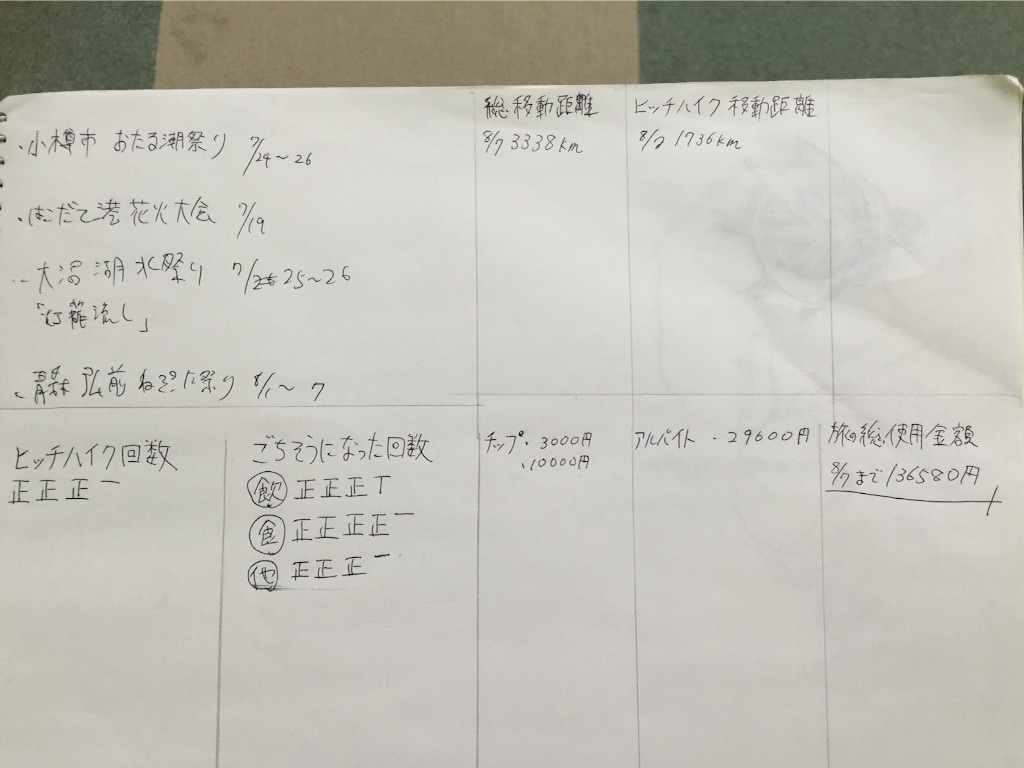 ・小樽市 おたる潮祭り 7/24～26
・はこだて港 花火大会 7/19
・大沼湖水祭り 7/25～26
「灯籠流し」
・青森 弘前 ねぷた祭り 8/1～7
総移動距離
8/7 3338km
ヒッチハイク移動距離
8/7 1736km
ヒッチハイク回数
正正正一
ごちそうになった回数
飲 正正正T
食 正正正正一
他 正正正一
チップ・3000円
・10000円
アルバイト・29600円
旅の総使用金額
8/7まで136580円